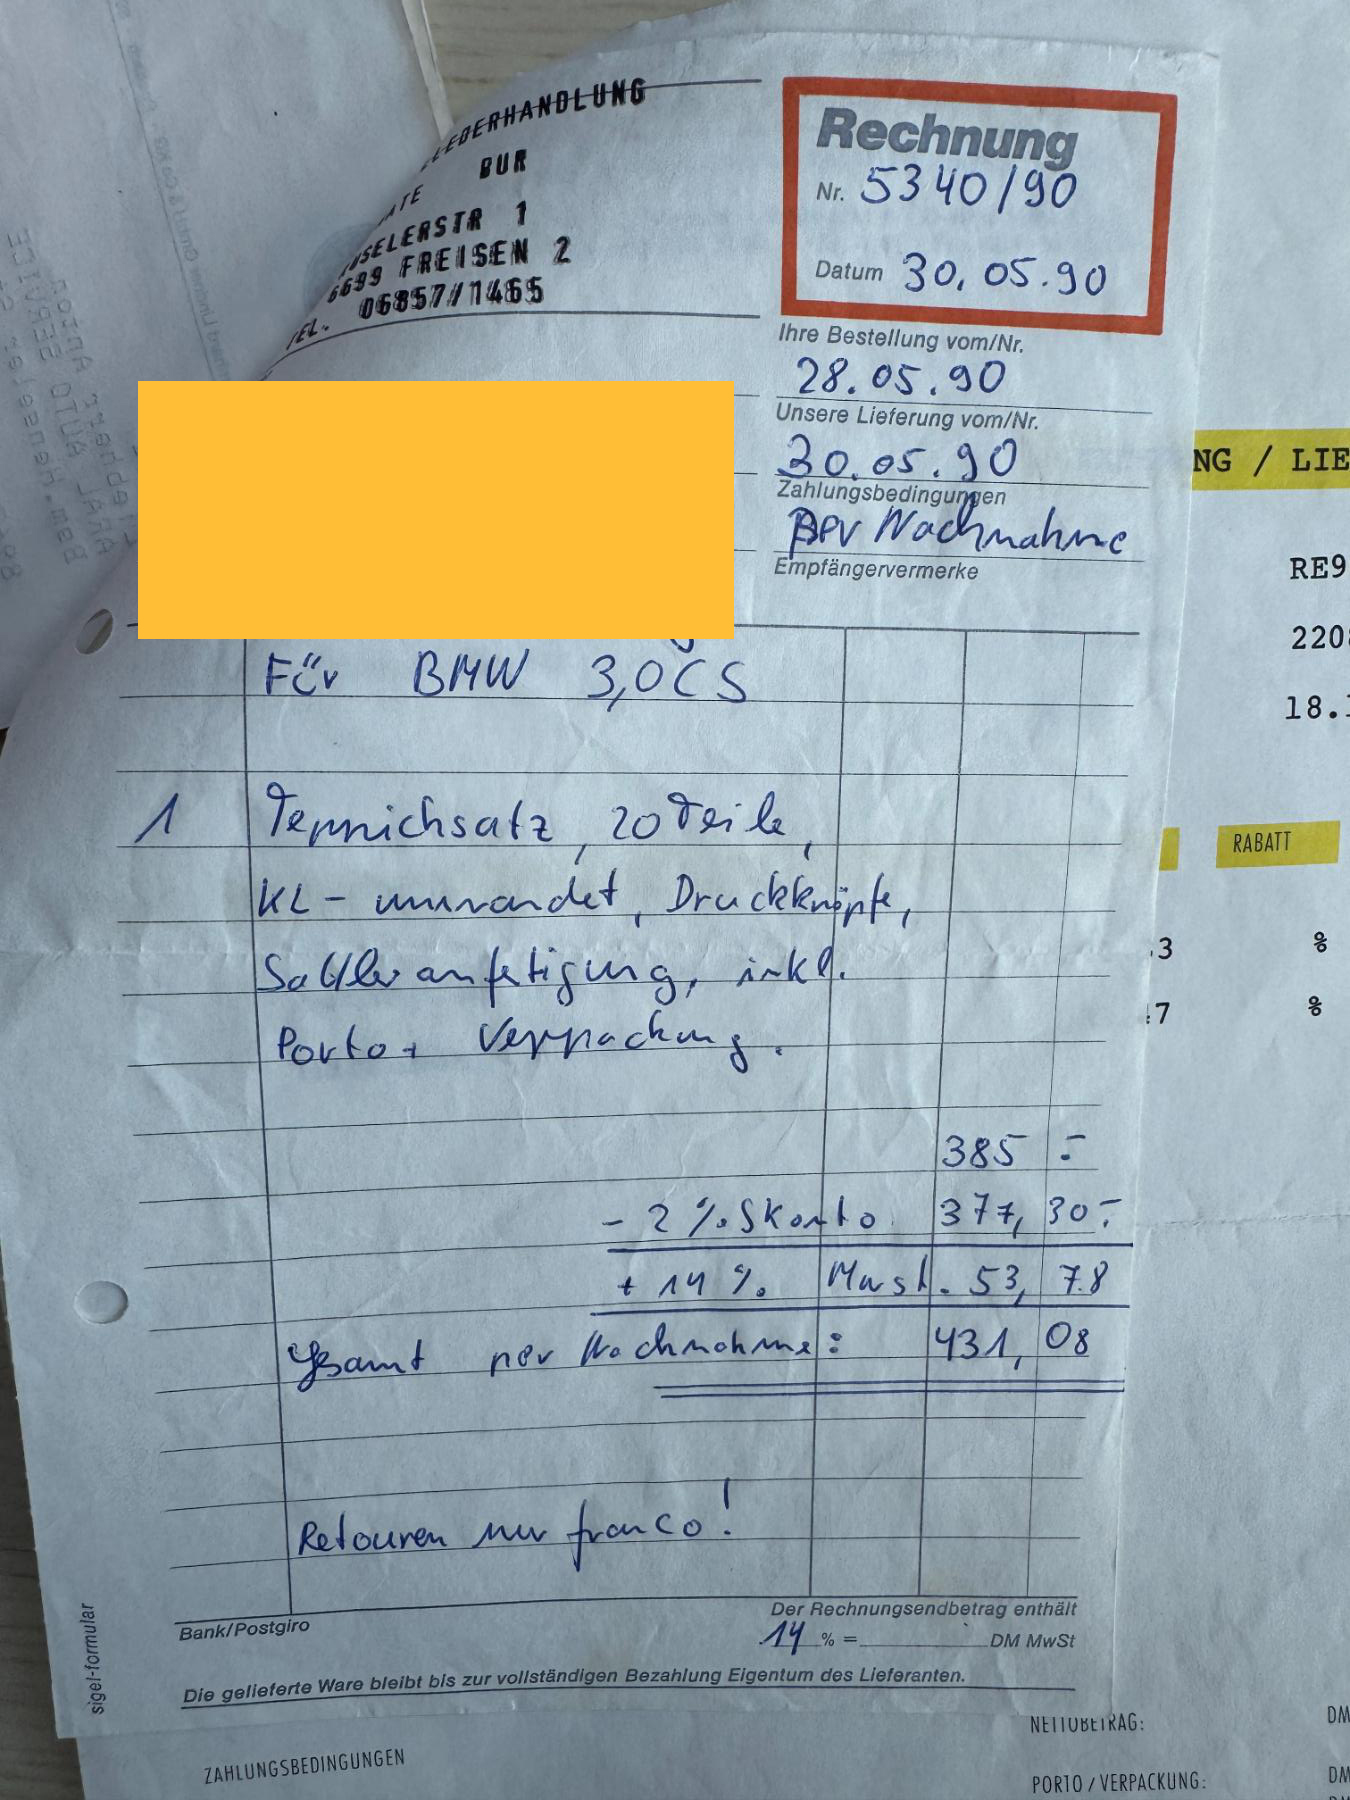 LEDERHANDLUNG
BUR
SELERSTR 1
6699 FREISEN 2
TEL. 06857/1465
Rechnung
Nr. 5340/90
Datum 30.05.90
Ihre Bestellung vom/Nr.
28.05.90
Unsere Lieferung vom/Nr.
30.05.90
Zahlungsbedingungen
Per Nachnahme
Empfängervermerke
Für BMW 3,0 CS
1 Teppichsatz, 20 Teile,
KL-umrandet, Druckknöpfe,
Sattleranfetigung, inkl.
Porto + Verppackung.
385 -
- 2 % Skonto 377, 30-
+ 14 % Mwst. 53, 78
Gesamt per Nachnahme: 431, 08
Retouren nur franco!
Bank/Postgiro
Der Rechnungsendbetrag enthält
14 % = DM MwSt
Die gelieferte Ware bleibt bis zur vollständigen Bezahlung Eigentum des Lieferanten.
sigel-formular
NG / LIE
RE9
220
18.
RABATT
3 %
7 %
NETTOBETRAG: DM
ZAHLUNGSBEDINGUNGEN
PORTO / VERPACKUNG: DM